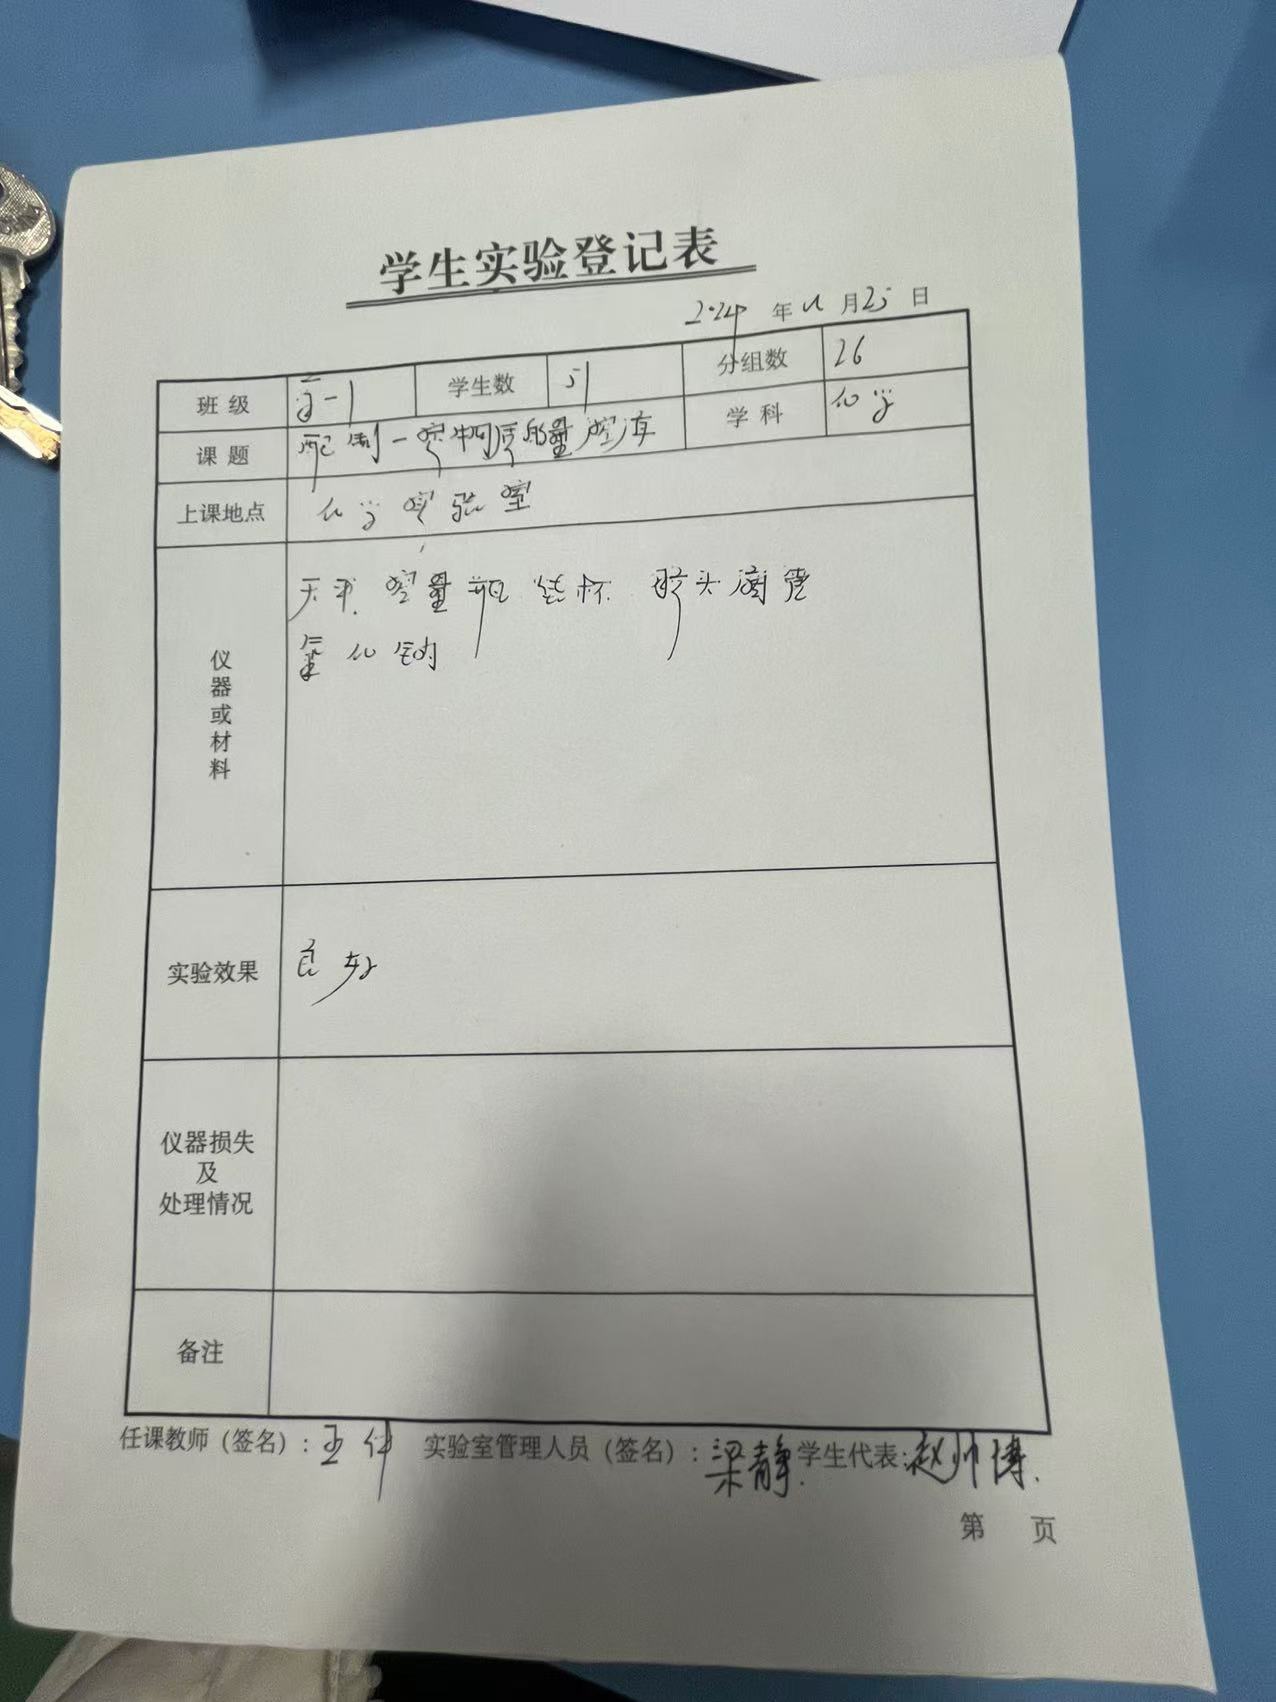 学生实验登记表
2024 年 11 月 25 日
班级 高一1 学生数 51 分组数 26
课题 配制一定物质的量浓度 学科 化学
上课地点 化学实验室
仪器或材料 天平 容量瓶 烧杯 胶头滴管
氯化钠
实验效果 良好
仪器损失
及
处理情况
备注
任课教师（签名）：王伟 实验室管理人员（签名）：梁静 学生代表：赵帅博
第 页